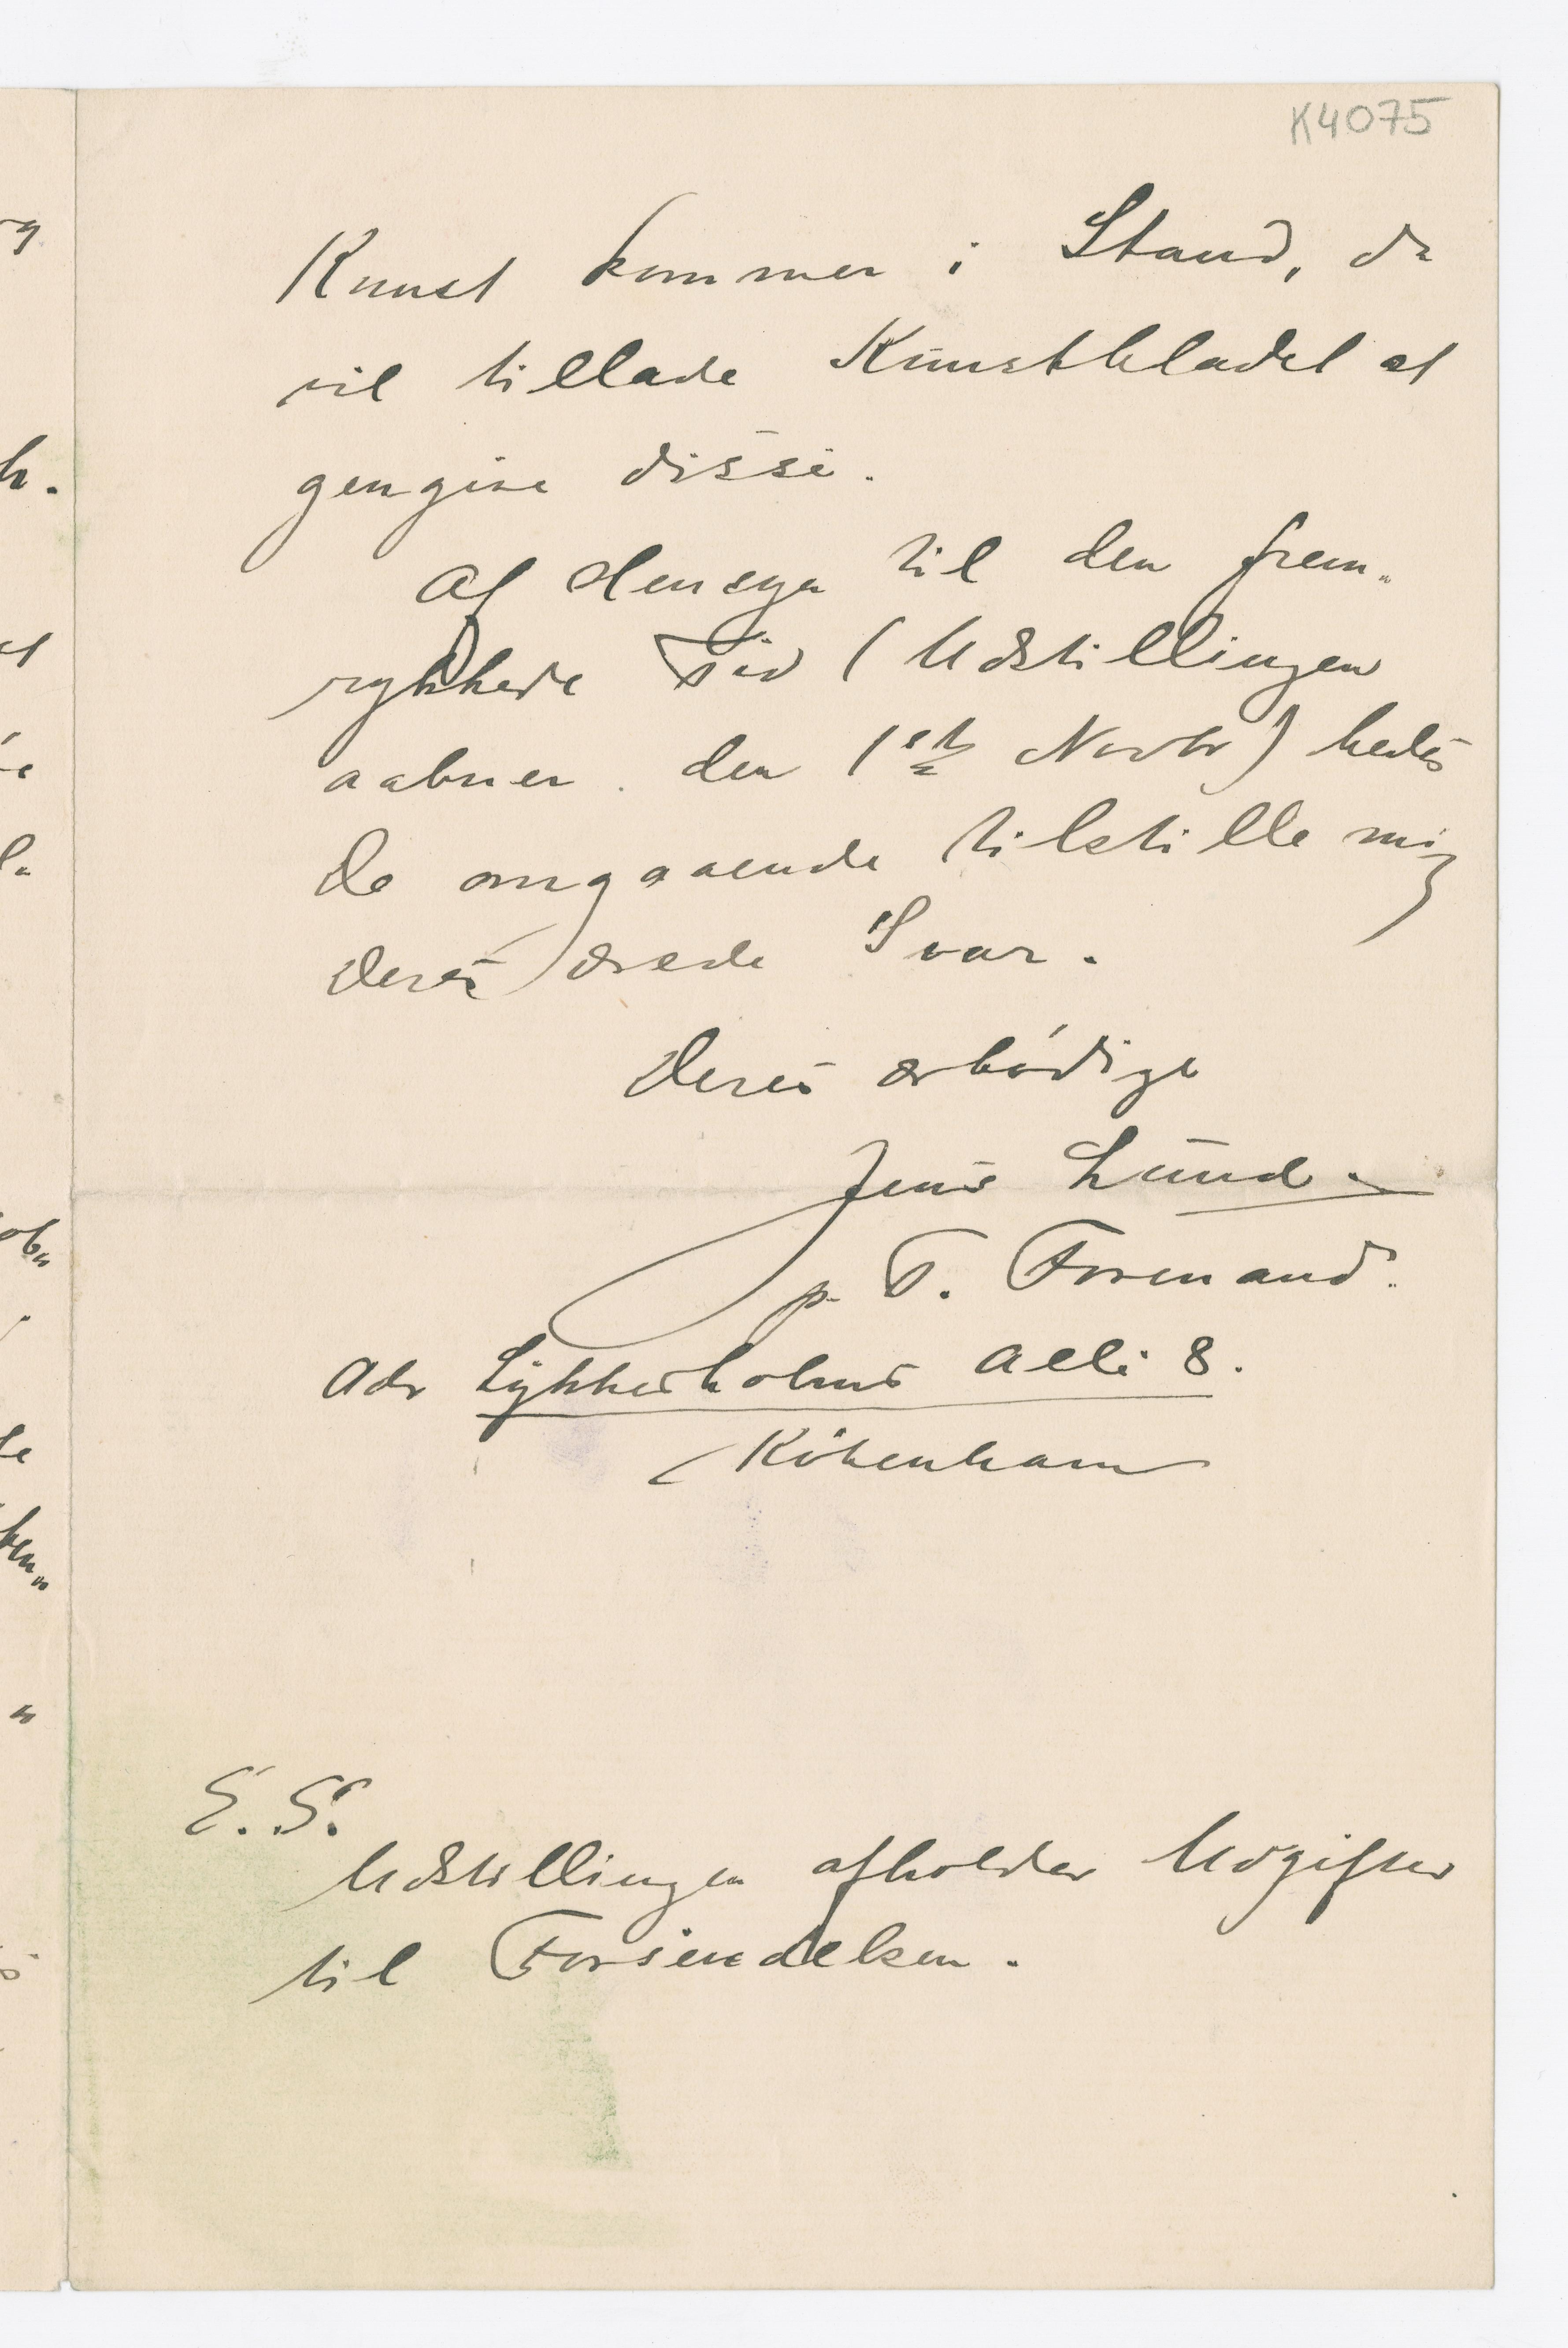 K4075
Kunst kommer i Stand, da
vil tillade Kunstbladet at
gengive disse.
Af Hensyn til den frem„
rykkede Tid (Udstillingen
aabner den 1ste Novbr) bedes
De omgaaende tilstille mig
Deres ærede Svar.
Deres ærbödige
Jens Lund.
p. T. Formand.
Adr Lykkesholms Allé 8.
Köbenhavn
E. S.
Udstillingen afholder Udgifter
til Forsendelsen.